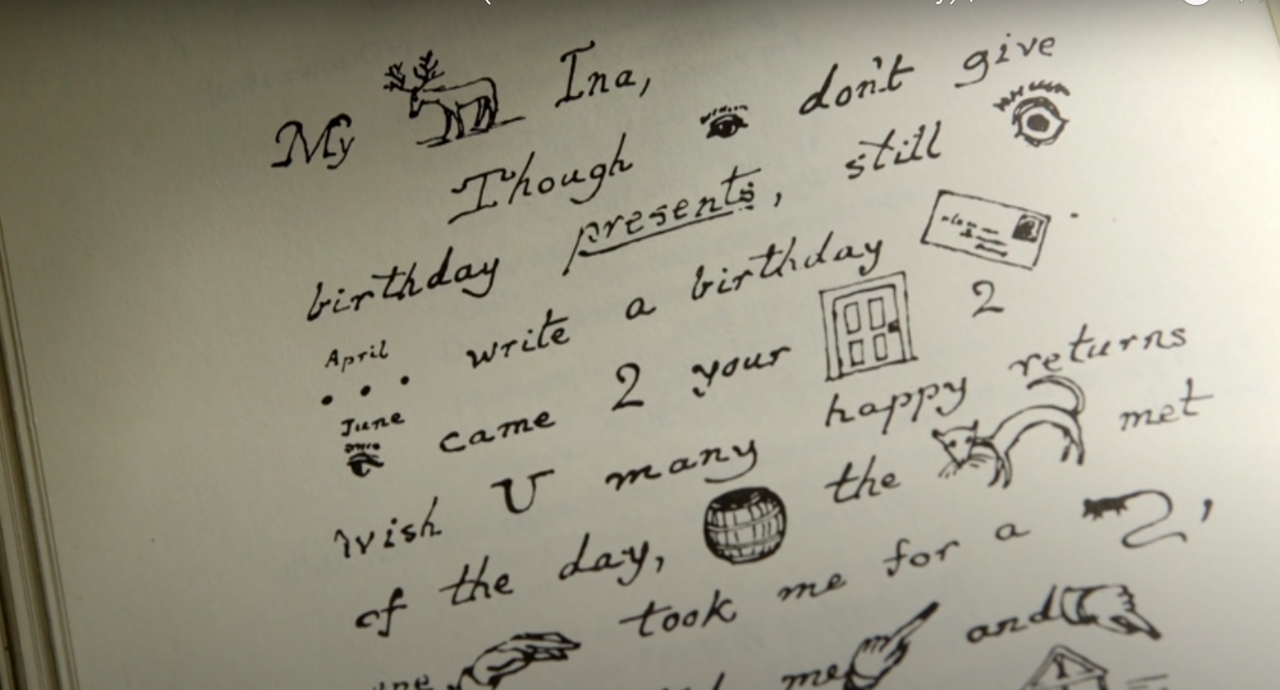 My Ina,
Though don't give
birthday presents, still
April
. . . write a birthday .
June
came 2 your 2
wish U many happy returns
of the day, the met
me took me for a ,
me and